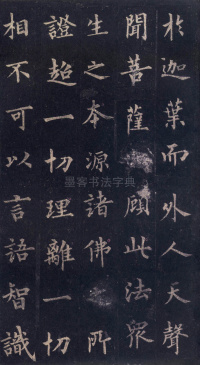 於迦葉而外人天聲
聞菩薩顧此法眾
生之本源諸佛所
證超一切理離一切
相不可以言語智識
墨客书法字典